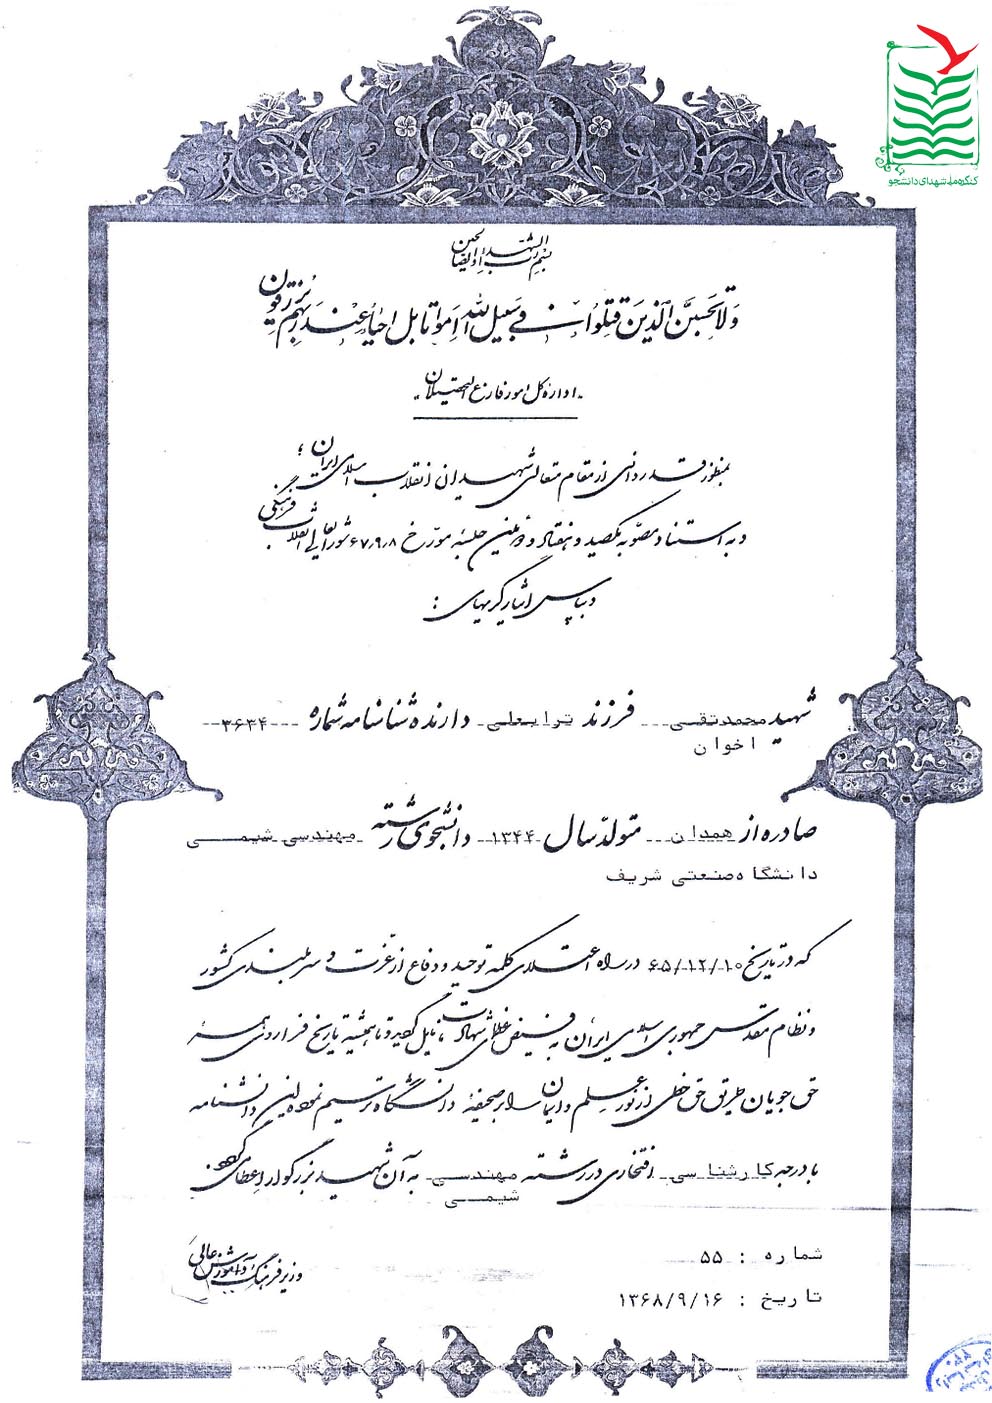 کنگره ملی شهدای دانشجو
بسم رب الشهداء و الصالحین
وَلا تَحسَبَنَّ الَّذینَ قُتِلُوا فی سَبیلِ اللّهِ اَمواتا بَل اَحیاءٌ عِندَ رَبِّهِم یُرزَقُون
«اداره کل امور فارغ التحصیلان»
بمنظور قدردانی از مقام متعالی شهیدان انقلاب اسلامی ایران ؛
و به استناد مصوبه یکصد و هفتاد و دومین جلسه مورخ ۶۷٫۹٫۸ شورایعالی انقلاب فرهنگی
و بپاس ایثارگریهای :
شهید محمدتقی فرزند ترابعلی دارنده شناسنامه شماره ۳۶۳۴
اخوان
صادره از همدان متولد سال ۱۳۴۴ دانشجوی رشته مهندسی شیمی
دانشگاه صنعتی شریف
که در تاریخ ۶۵/۱۲/۱۰ در راه اعتلای کلمه توحید و دفاع از عزت و سربلندی کشور
و نظام مقدس جمهوری اسلامی ایران به فیض عظمای شهادت نایل گردید و تا همیشه تاریخ فراروی همه
حق جویان طریق حق خطی از نور علم و ایمان را بر صحیفه دانشگاه ترسیم نموده این دانشنامه
با درجه کارشناسی افتخاری در رشته مهندسی به آن شهید بزرگوار اعطا می گردد.
شیمی
شماره : ۵۵
تاریخ : ۱۳۶۸/۹/۱۶
وزیر فرهنگ و آموزش عالی